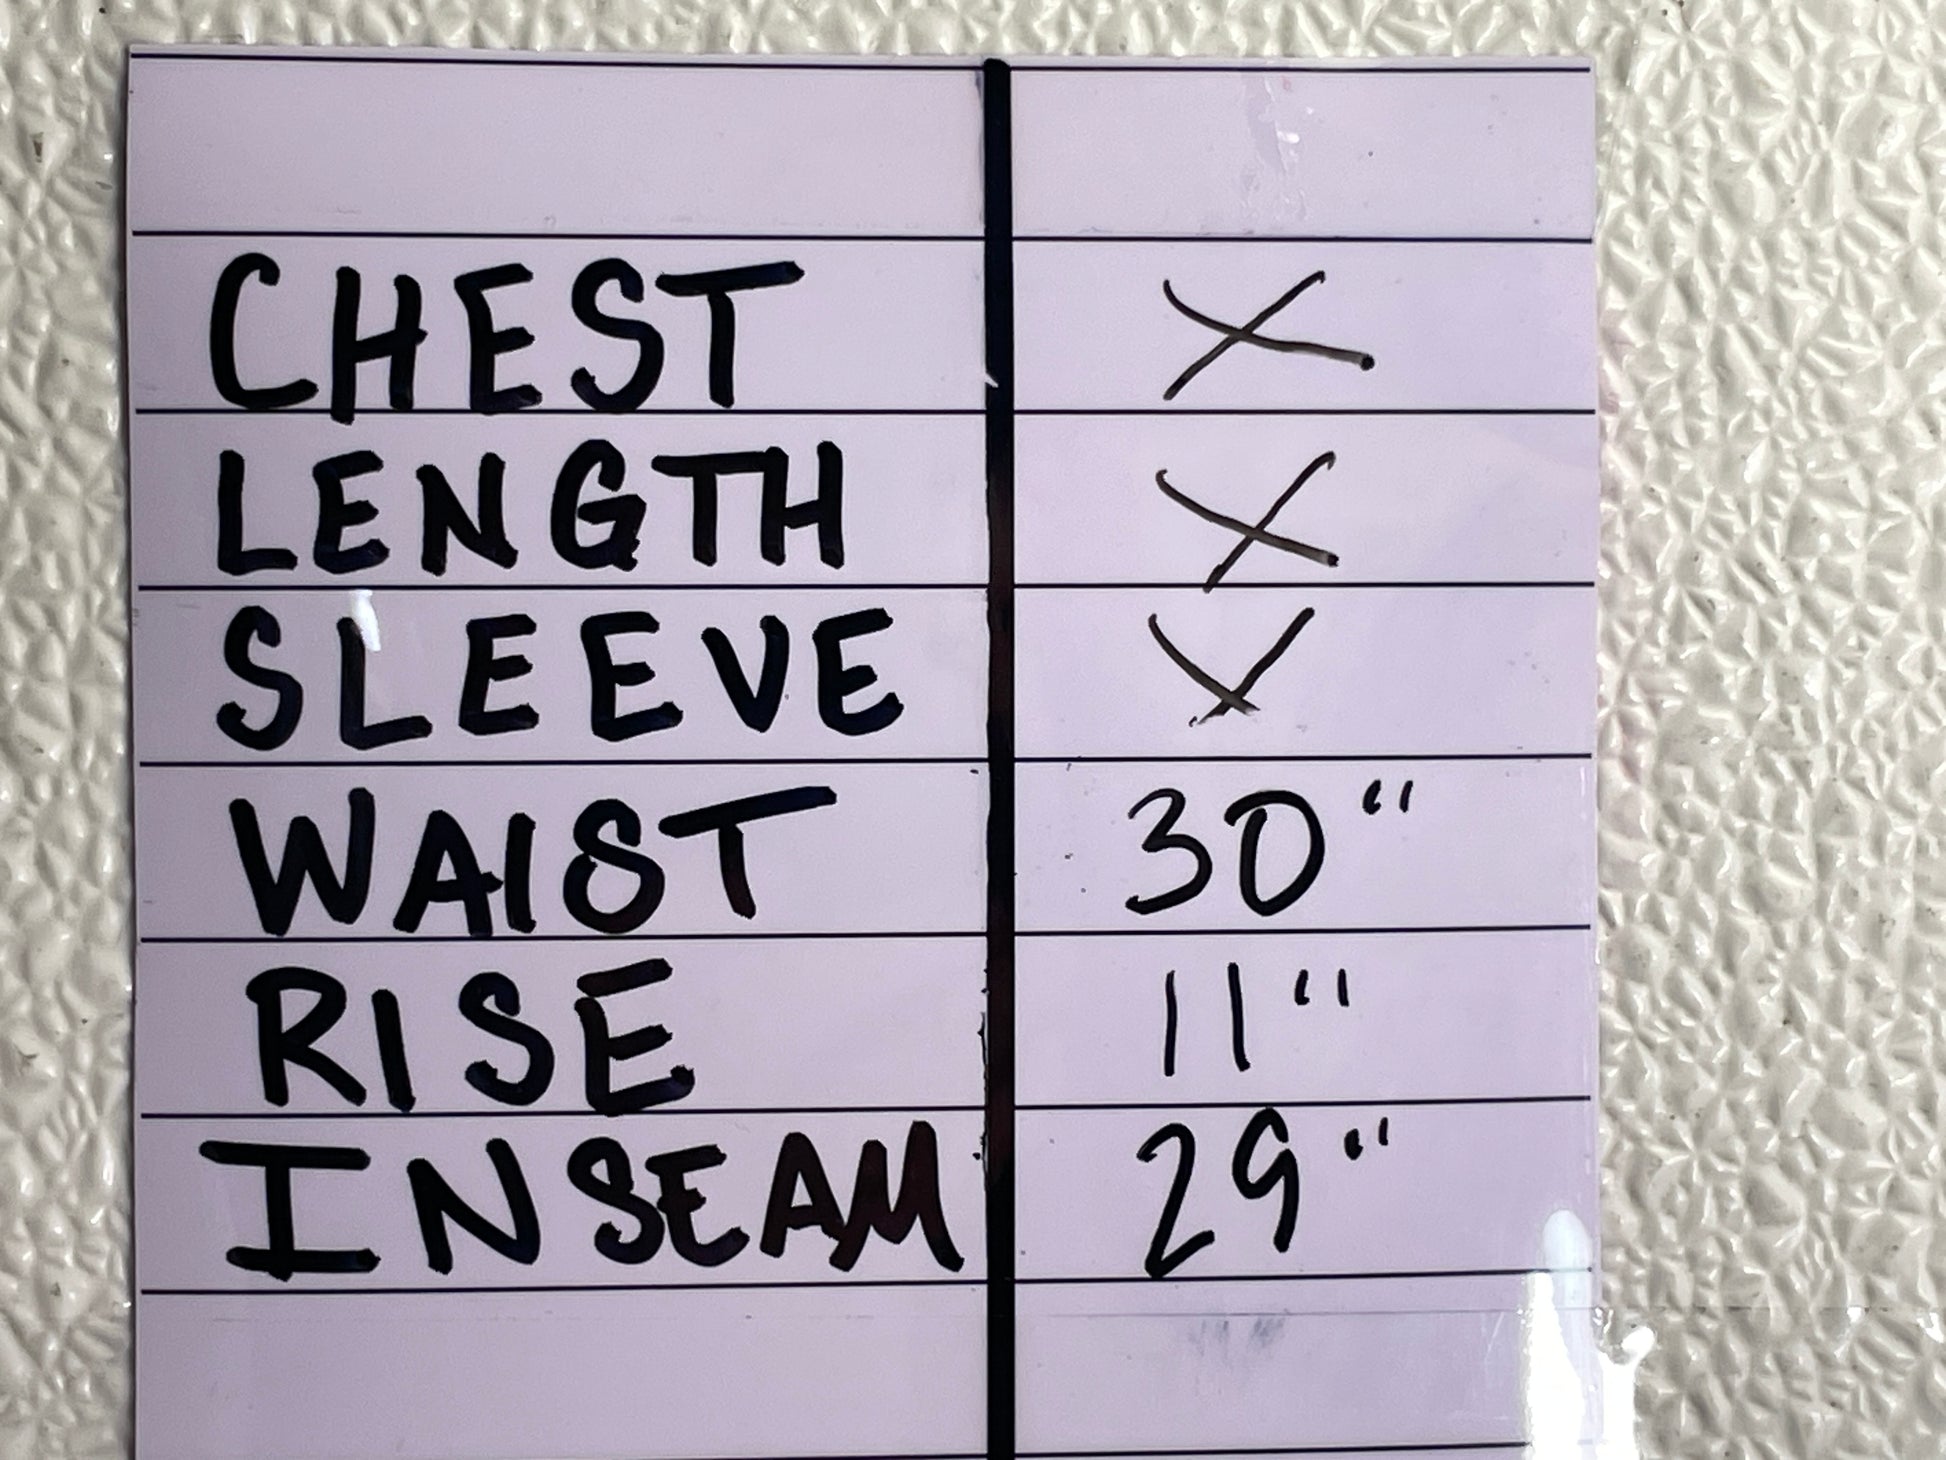 CHEST X
LENGTH X
SLEEVE X
WAIST 30"
RISE 11"
INSEAM 29"